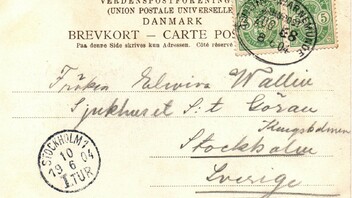 VERDENSPOSTFORENINGEN
(UNION POSTALE UNIVERSELLE)
DANMARK
BREVKORT – CARTE POS
Paa denne Side skrives kun Adressen. Côté réservé
5
Fröken Elvira Wallin
Sjukhuset S:t Göran
Kungsholmen
Stockholm
Sverige
STOCKHOLM 1
10
19 04
6
1.TUR